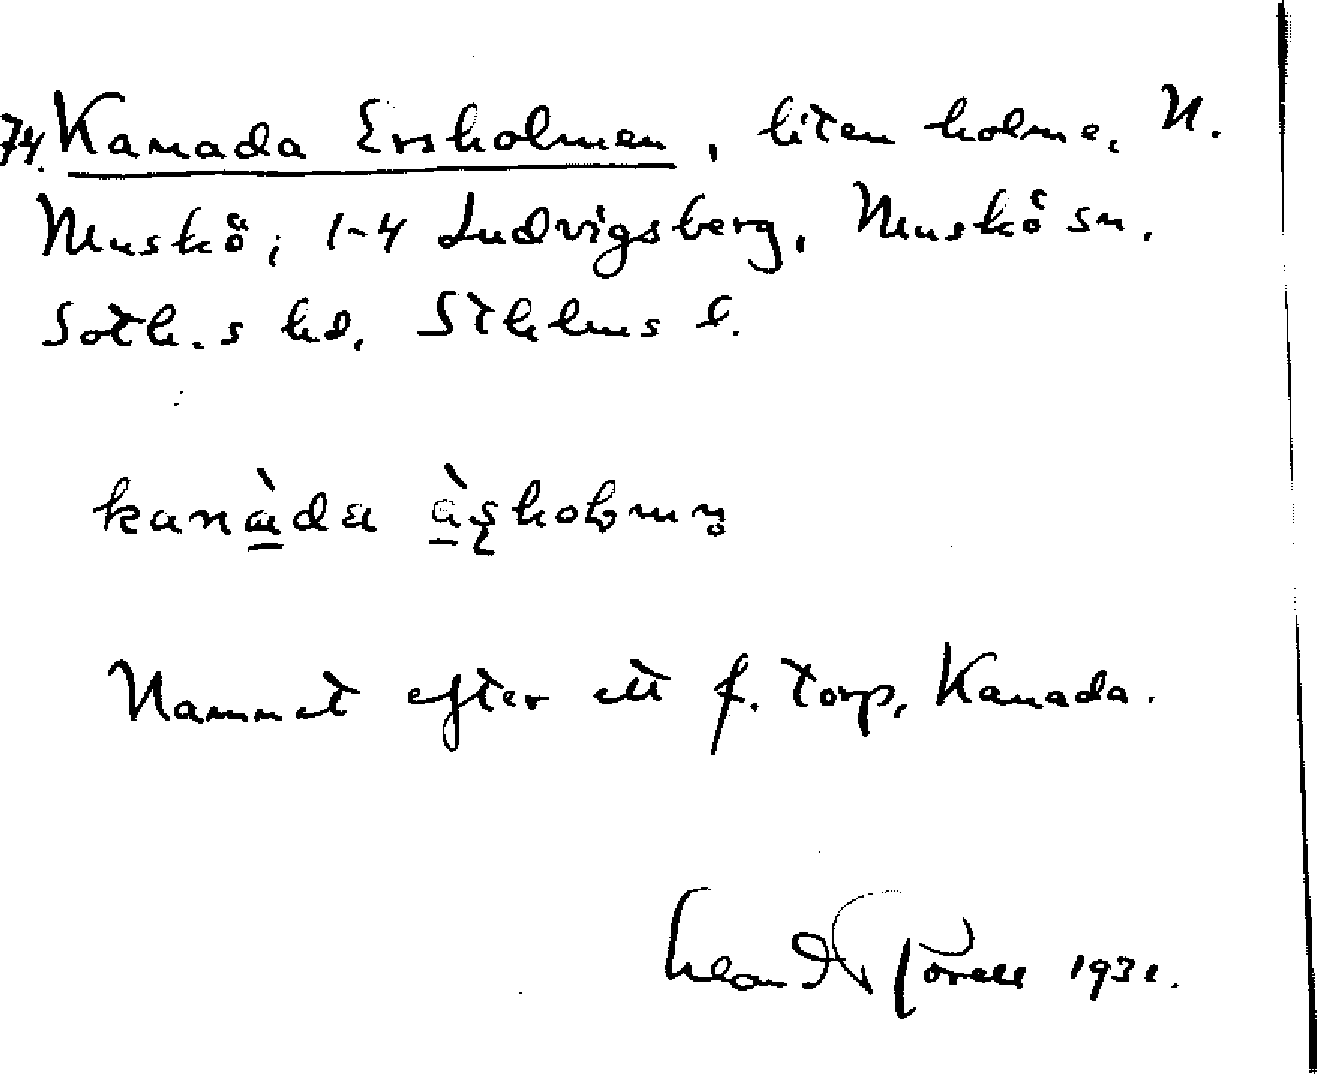 74. Kanada Ersholmen, liten holme, N.
Muskö; 1-4 Ludvigsberg, Muskö sn.
Soth.s hd, Sthlms l.
kanàda àşholmn̥
Namnet efter ett f. torp, Kanada.
1931.